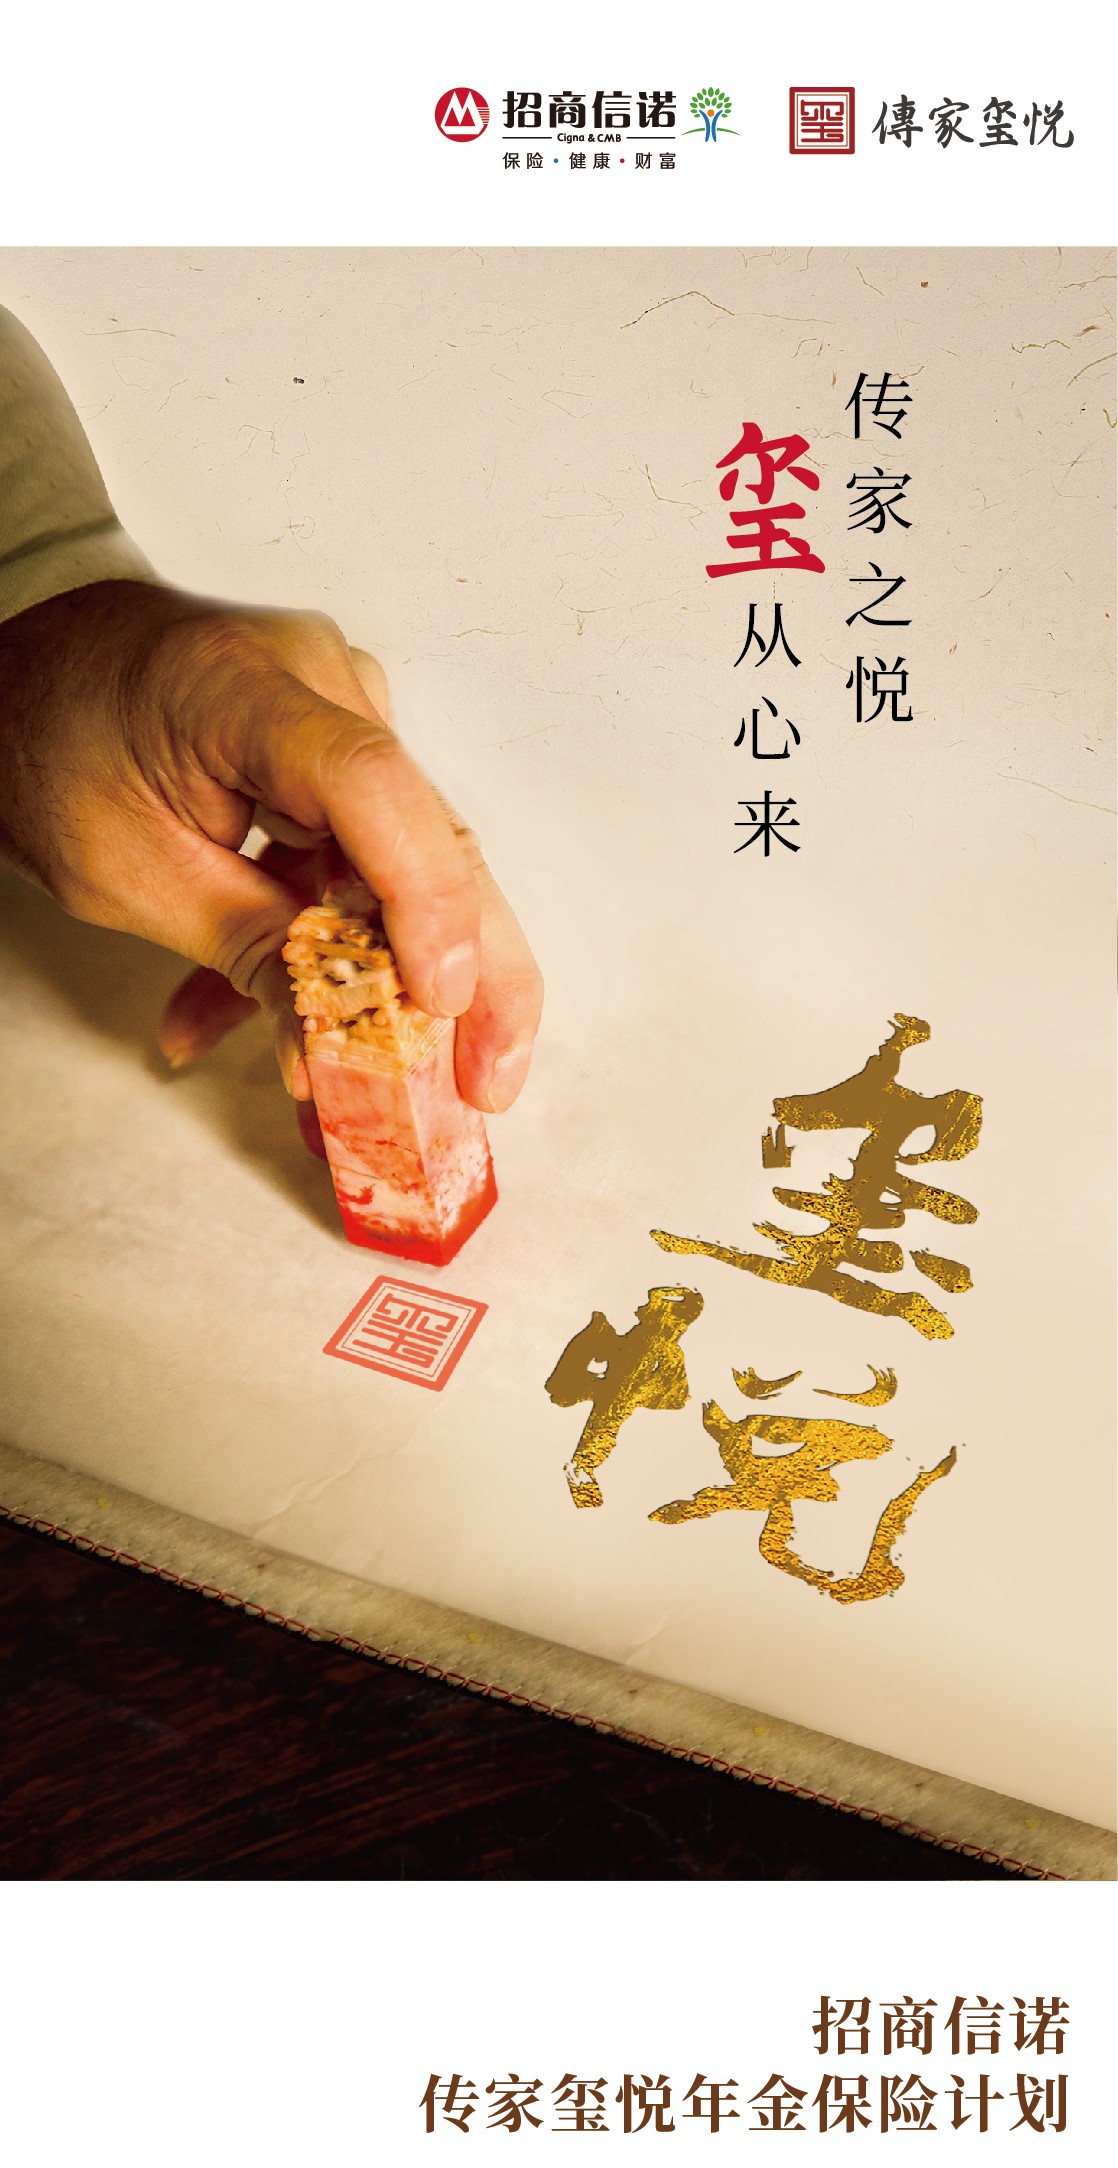 招商信诺
Cigna & CMB
保险·健康·财富
玺
傳家玺悦
传家之悦
玺从心来
玺悦
玺
招商信诺
传家玺悦年金保险计划